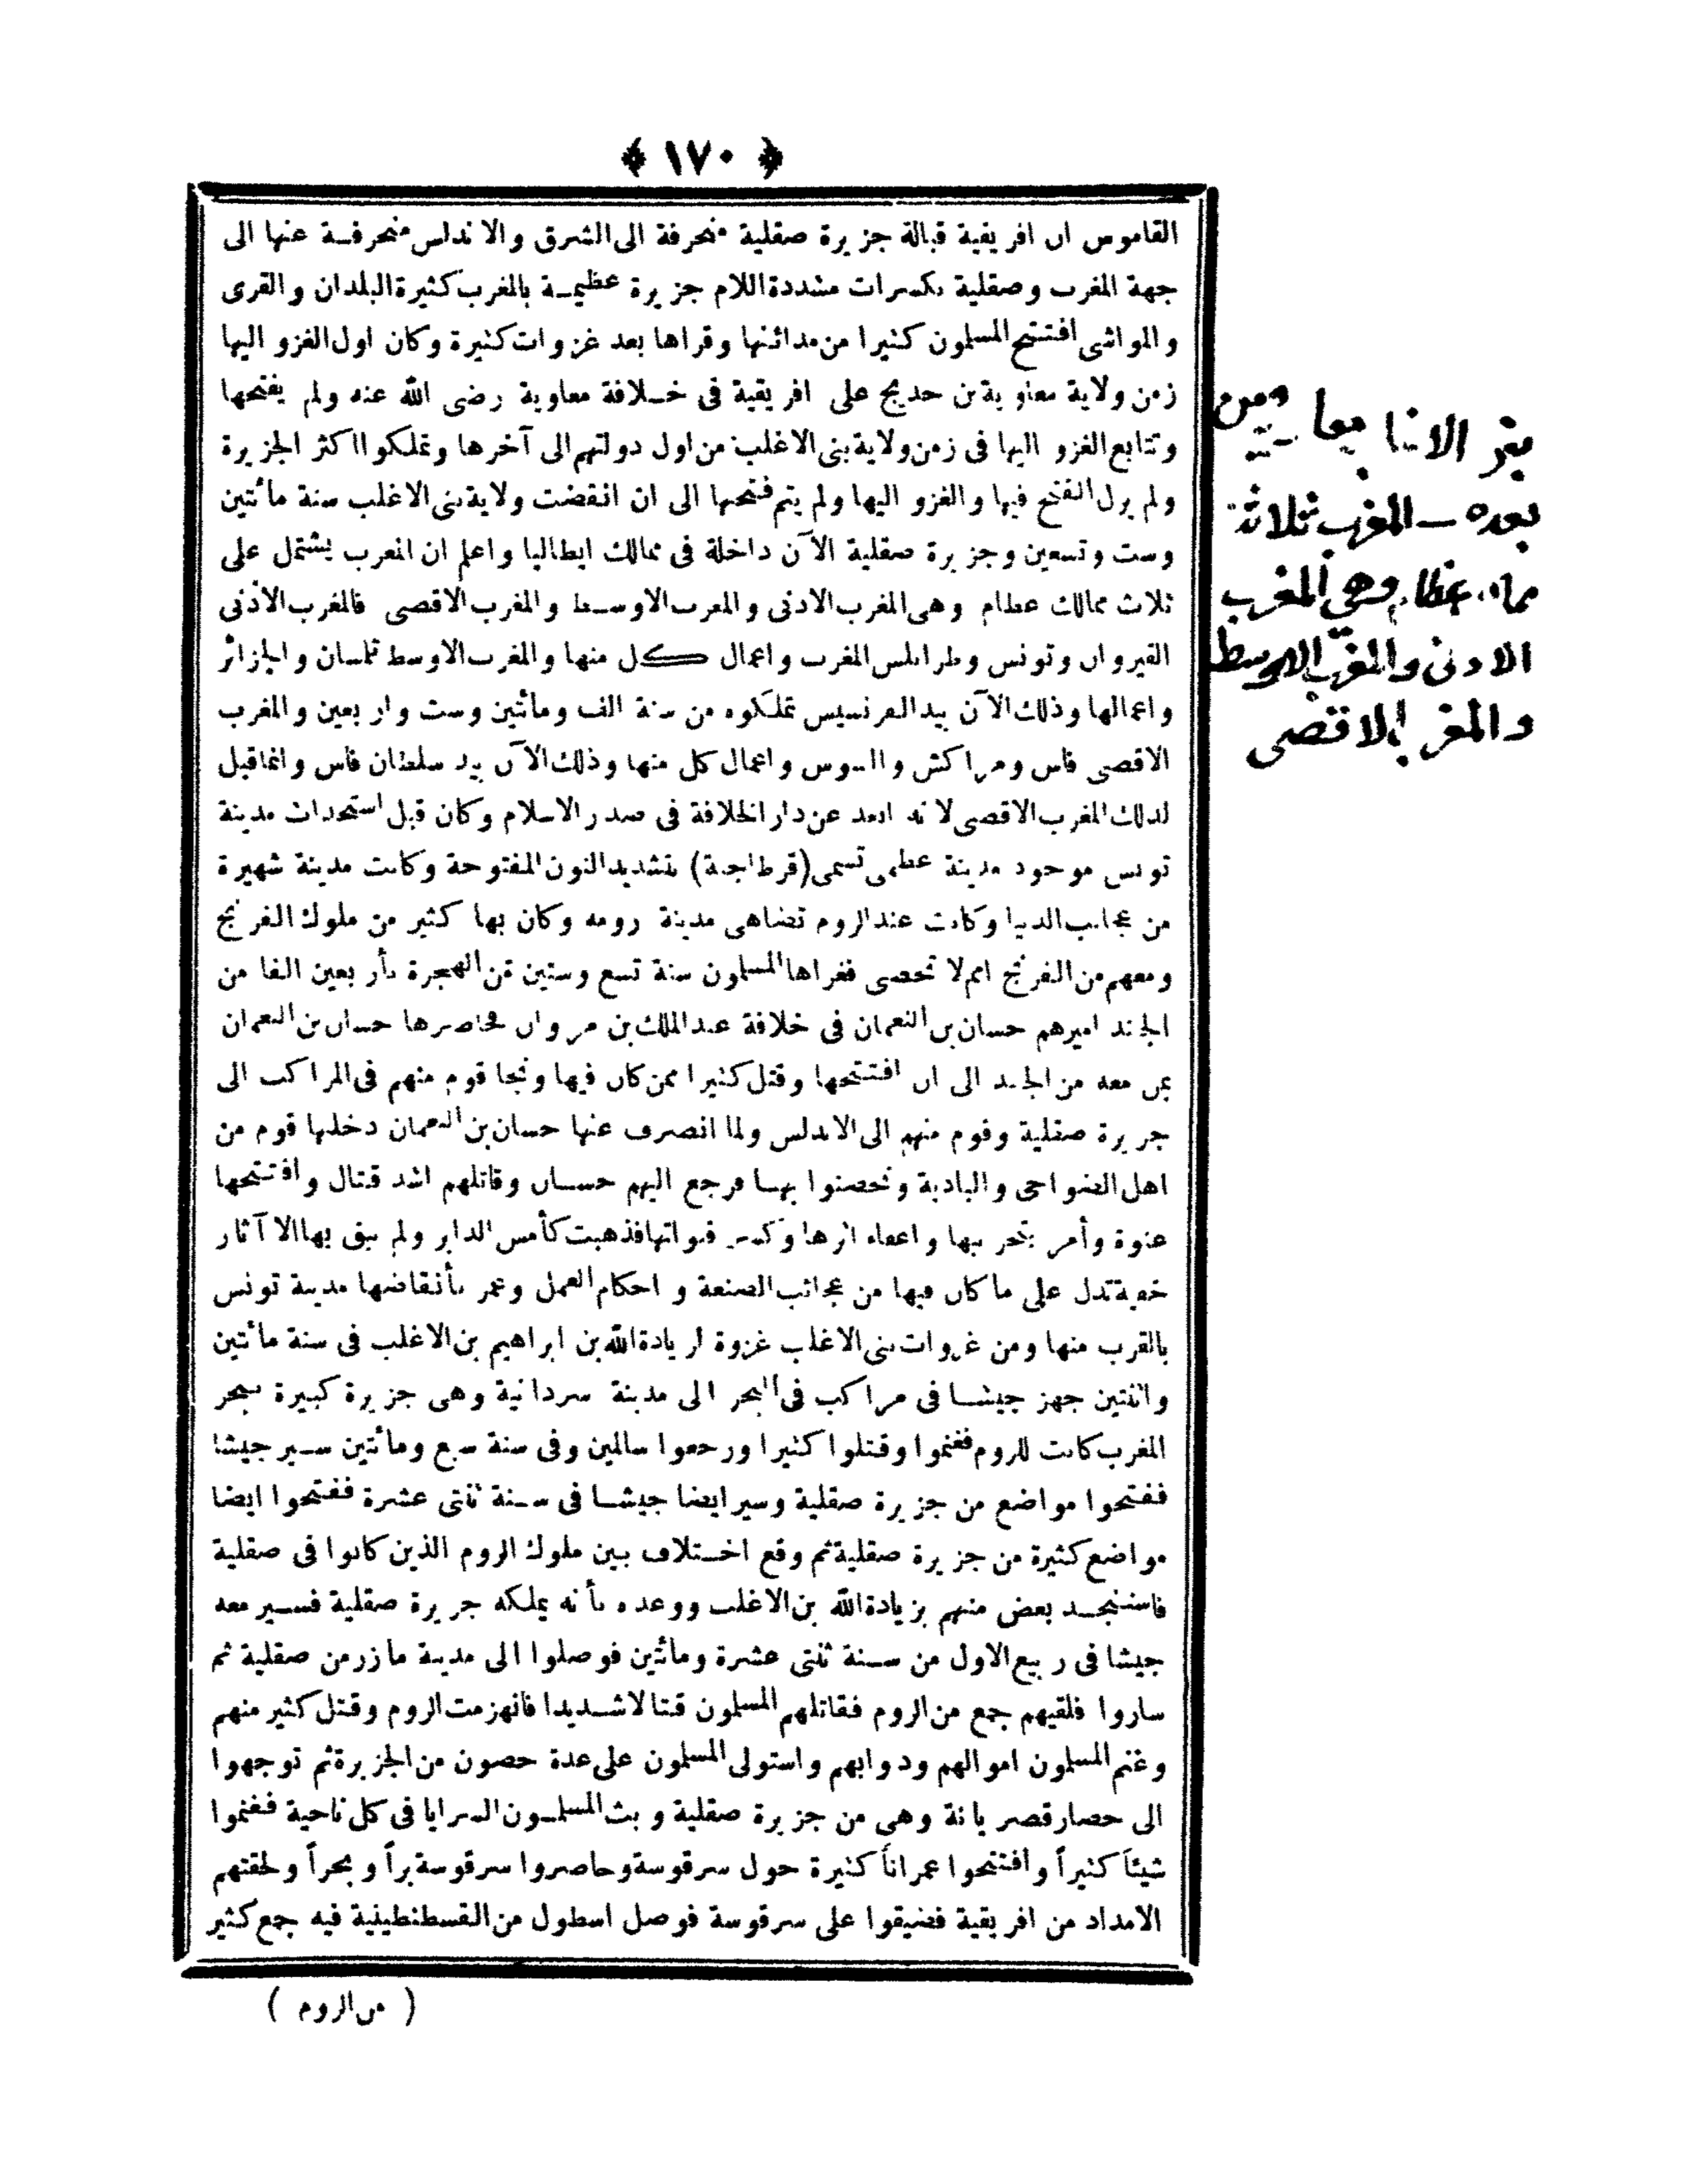 ﴿ ١٧٠ ﴾
القاموس ان افريقية قبالة جزيرة صقلية منحرفة الى الشرق والاندلس منحرفة عنها الى
جهة المغرب وصقلية بكسرات مشددة اللام جزيرة عظيمة بالمغرب كثيرة البلدان والقرى
والمواشى افتتح المسلمون كثيرا من مدائنها وقراها بعد غزوات كثيرة وكان اول الغزو اليها
زمن ولاية معاوية بن حديج على افريقية فى خلافة معاوية رضى الله عنه ولم يفتحها
وتتابع الغزو اليها فى زمن ولاية بنى الاغلب من اول دولتهم الى آخرها وتملكوا اكثر الجزيرة
ولم يزل الفتح فيها والغزو اليها ولم يتم فتحها الى ان انقضت ولاية بنى الاغلب سنة مائتين
وست وتسعين وجزيرة صقلية الآن داخلة فى ممالك ايطاليا واعلم ان المغرب يشتمل على
ثلاث ممالك عظام وهى المغرب الادنى والمغرب الاوسط والمغرب الاقصى فالمغرب الادنى
القيروان وتونس وطرابلس المغرب واعمال كل منها والمغرب الاوسط تلمسان والجزائر
واعمالها وذلك الآن بيد الفرنسيس تملكوه من سنة الف ومائتين وست واربعين والمغرب
الاقصى فاس ومراكش والسوس واعمال كل منها وذلك الآن بيد سلطان فاس وانما قيل
لذلك المغرب الاقصى لانه ابعد عن دار الخلافة فى صدر الاسلام وكان قبل استحداث مدينة
تونس موجود مدينة عظمى تسمى (قرطاجنة) بتشديد النون المفتوحة وكانت مدينة شهيرة
من عجائب الدنيا وكانت عند الروم تضاهى مدينة رومه وكان بها كثير من ملوك الفرنج
ومعهم من الفرنج امم لا تحصى فغزاها المسلمون سنة تسع وستين من الهجرة بأربعين الفا من
الجند اميرهم حسان بن النعمان فى خلافة عبد الملك بن مروان فحاصرها حسان بن النعمان
بمن معه من الجند الى ان افتتحها وقتل كثيرا ممن كان فيها ونجا قوم منهم فى المراكب الى
جزيرة صقلية وقوم منهم الى الاندلس ولما انصرف عنها حسان بن النعمان دخلها قوم من
اهل الضواحى والبادية وتحصنوا بها فرجع اليهم حسان وقاتلهم اشد قتال وافتتحها
عنوة وأمر بتخريبها واعفاء اثرها وكسر قنواتها فذهبت كأمس الدابر ولم يبق بها الا آثار
خفية تدل على ما كان فيها من عجائب الصنعة و احكام العمل وعمر بأنقاضها مدينة تونس
بالقرب منها ومن غزوات بنى الاغلب غزوة لزيادة الله بن ابراهيم بن الاغلب فى سنة مائتين
واثنتين جهز جيشا فى مراكب فى البحر الى مدينة سردانية وهى جزيرة كبيرة ببحر
المغرب كانت للروم فغنموا وقتلوا كثيرا ورجعوا سالمين وفى سنة سبع ومائتين سير جيشا
ففتحوا مواضع من جزيرة صقلية وسير ايضا جيشا فى سنة ثنتى عشرة ففتحوا ايضا
مواضع كثيرة من جزيرة صقلية ثم وقع اختلاف بين ملوك الروم الذين كانوا فى صقلية
فاستنجد بعض منهم بزيادة الله بن الاغلب ووعده بأنه يملكه جزيرة صقلية فسير معه
جيشا فى ربيع الاول من سنة ثنتى عشرة ومائتين فوصلوا الى مدينة مازر من صقلية ثم
ساروا فلقيهم جمع من الروم فقاتلهم المسلمون قتالا شديدا فانهزمت الروم وقتل كثير منهم
وغنم المسلمون اموالهم ودوابهم واستولى المسلمون على عدة حصون من الجزيرة ثم توجهوا
الى حصار قصر يانة وهى من جزيرة صقلية وبث المسلمون السرايا فى كل ناحية فغنموا
شيئاً كثيراً وافتتحوا عمراناً كثيرة حول سرقوسة وحاصروا سرقوسة براً وبحراً ولحقتهم
الامداد من افريقية فضيقوا على سرقوسة فوصل اسطول من القسطنطينية فيه جمع كثير
( من الروم )
بعده المغرب ثلاثة
وهى المغرب
الادنى والمغرب الاوسط
والمغرب الاقصى